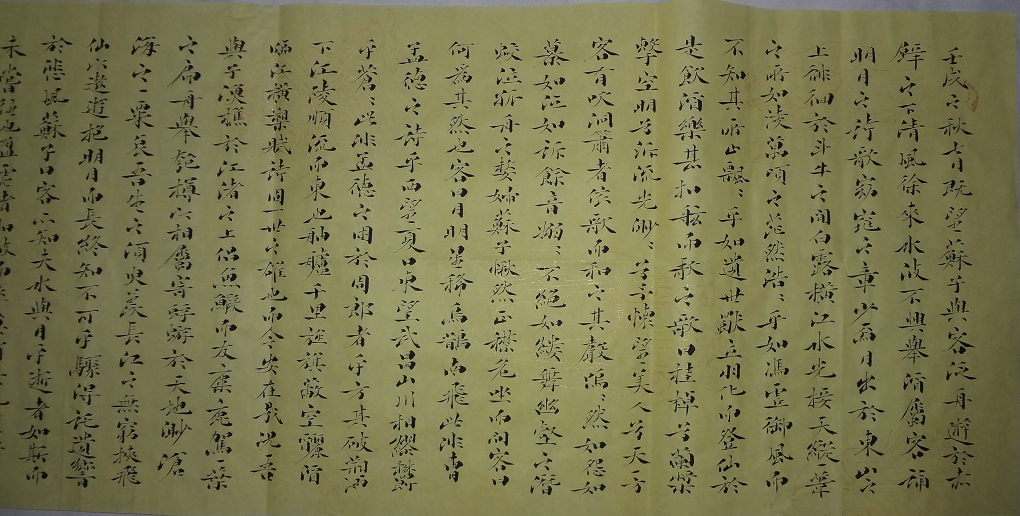 壬戌之秋七月既望蘇子與客泛舟遊於赤
壁之下清風徐來水波不興舉酒屬客誦
明月之詩歌窈窕之章少焉月出於東山之
上徘徊於斗牛之間白露橫江水光接天縱一葦
之所如凌萬頃之茫然浩々乎如馮虛御風而
不知其所止飄乎如遺世獨立羽化而登仙於
是飲酒樂甚扣舷而歌之歌曰桂棹兮蘭槳
擊空明兮泝流光渺々兮予懷望美人兮天一方
客有吹洞簫者倚歌而和之其聲嗚々然如怨如
慕如泣如訴餘音嫋々不絕如縷舞幽壑之潛
蛟泣孤舟之嫠婦蘇子愀然正襟危坐而問客曰
何為其然也客曰月明星稀烏鵲南飛此非曹
孟德之詩乎西望夏口東望武昌山川相繆鬱
乎蒼々此非孟德之困於周郎者乎方其破荊州
下江陵順流而東也舳艫千里旌旗蔽空釃酒
臨江橫槊賦詩固一世之雄也而今安在哉況吾
與子漁樵於江渚之上侶魚鰕而友麋鹿駕一葉
之扁舟舉匏樽以相屬寄蜉蝣於天地渺滄
海之一粟哀吾生之須臾羨長江之無窮挾飛
仙以遨遊抱明月而長終知不可乎驟得託遺響
於悲風蘇子曰客亦知夫水與月乎逝者如斯而
未嘗往也盈虛者如彼而